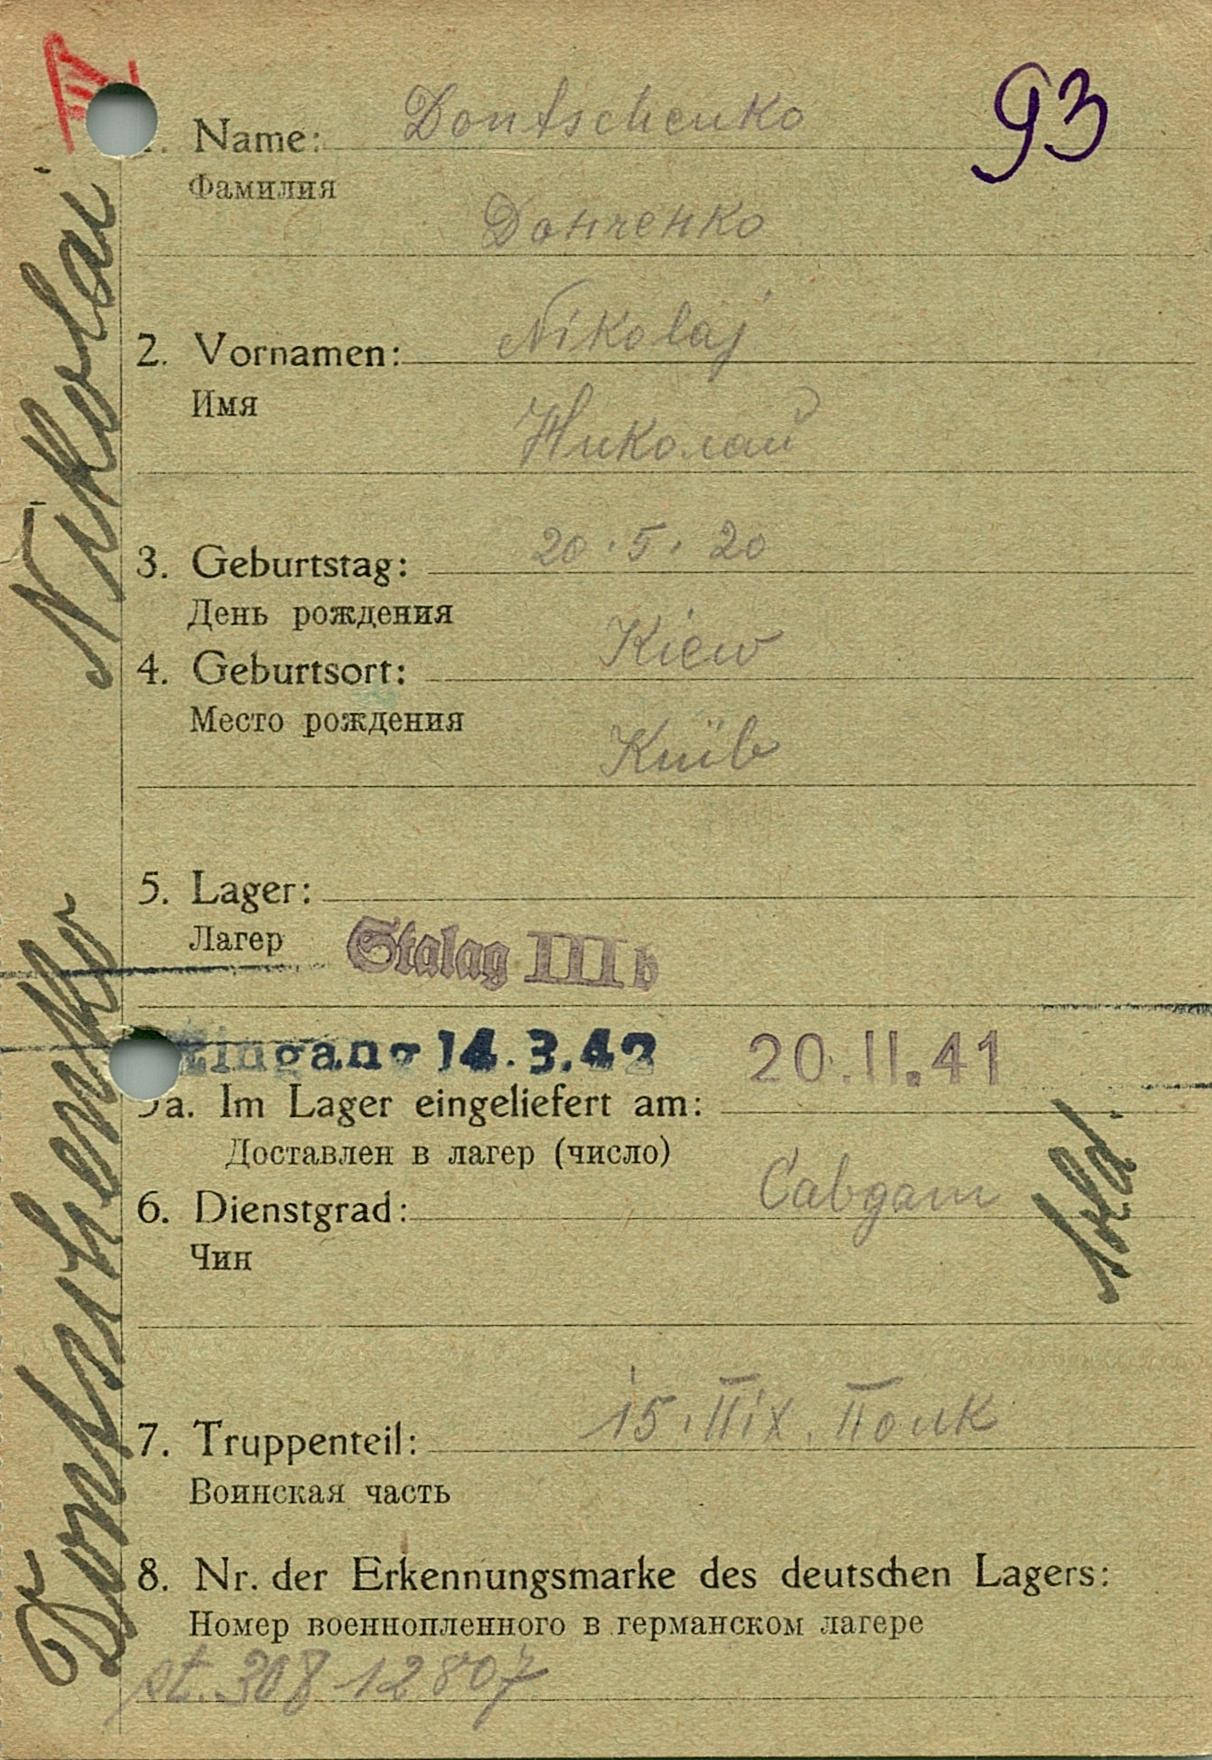 93
Name: Dontschenko
Фамилия
Донченко
2. Vornamen: Nikolaj
Имя
Николай
3. Geburtstag: 20.5.20
День рождения
4. Geburtsort: Kiew
Место рождения
Київ
5. Lager:
Лагер
Stalag IIIb
Eingang 14.3.42 20.11.41
5a. Im Lager eingeliefert am:
Доставлен в лагер (число)
6. Dienstgrad:
Чин
Sold.
7. Truppenteil: 15. Піх. Полк
Воинская часть
8. Nr. der Erkennungsmarke des deutschen Lagers:
Номер военнопленного в германском лагере
st. 308 12807
Dontschenko Nikolai